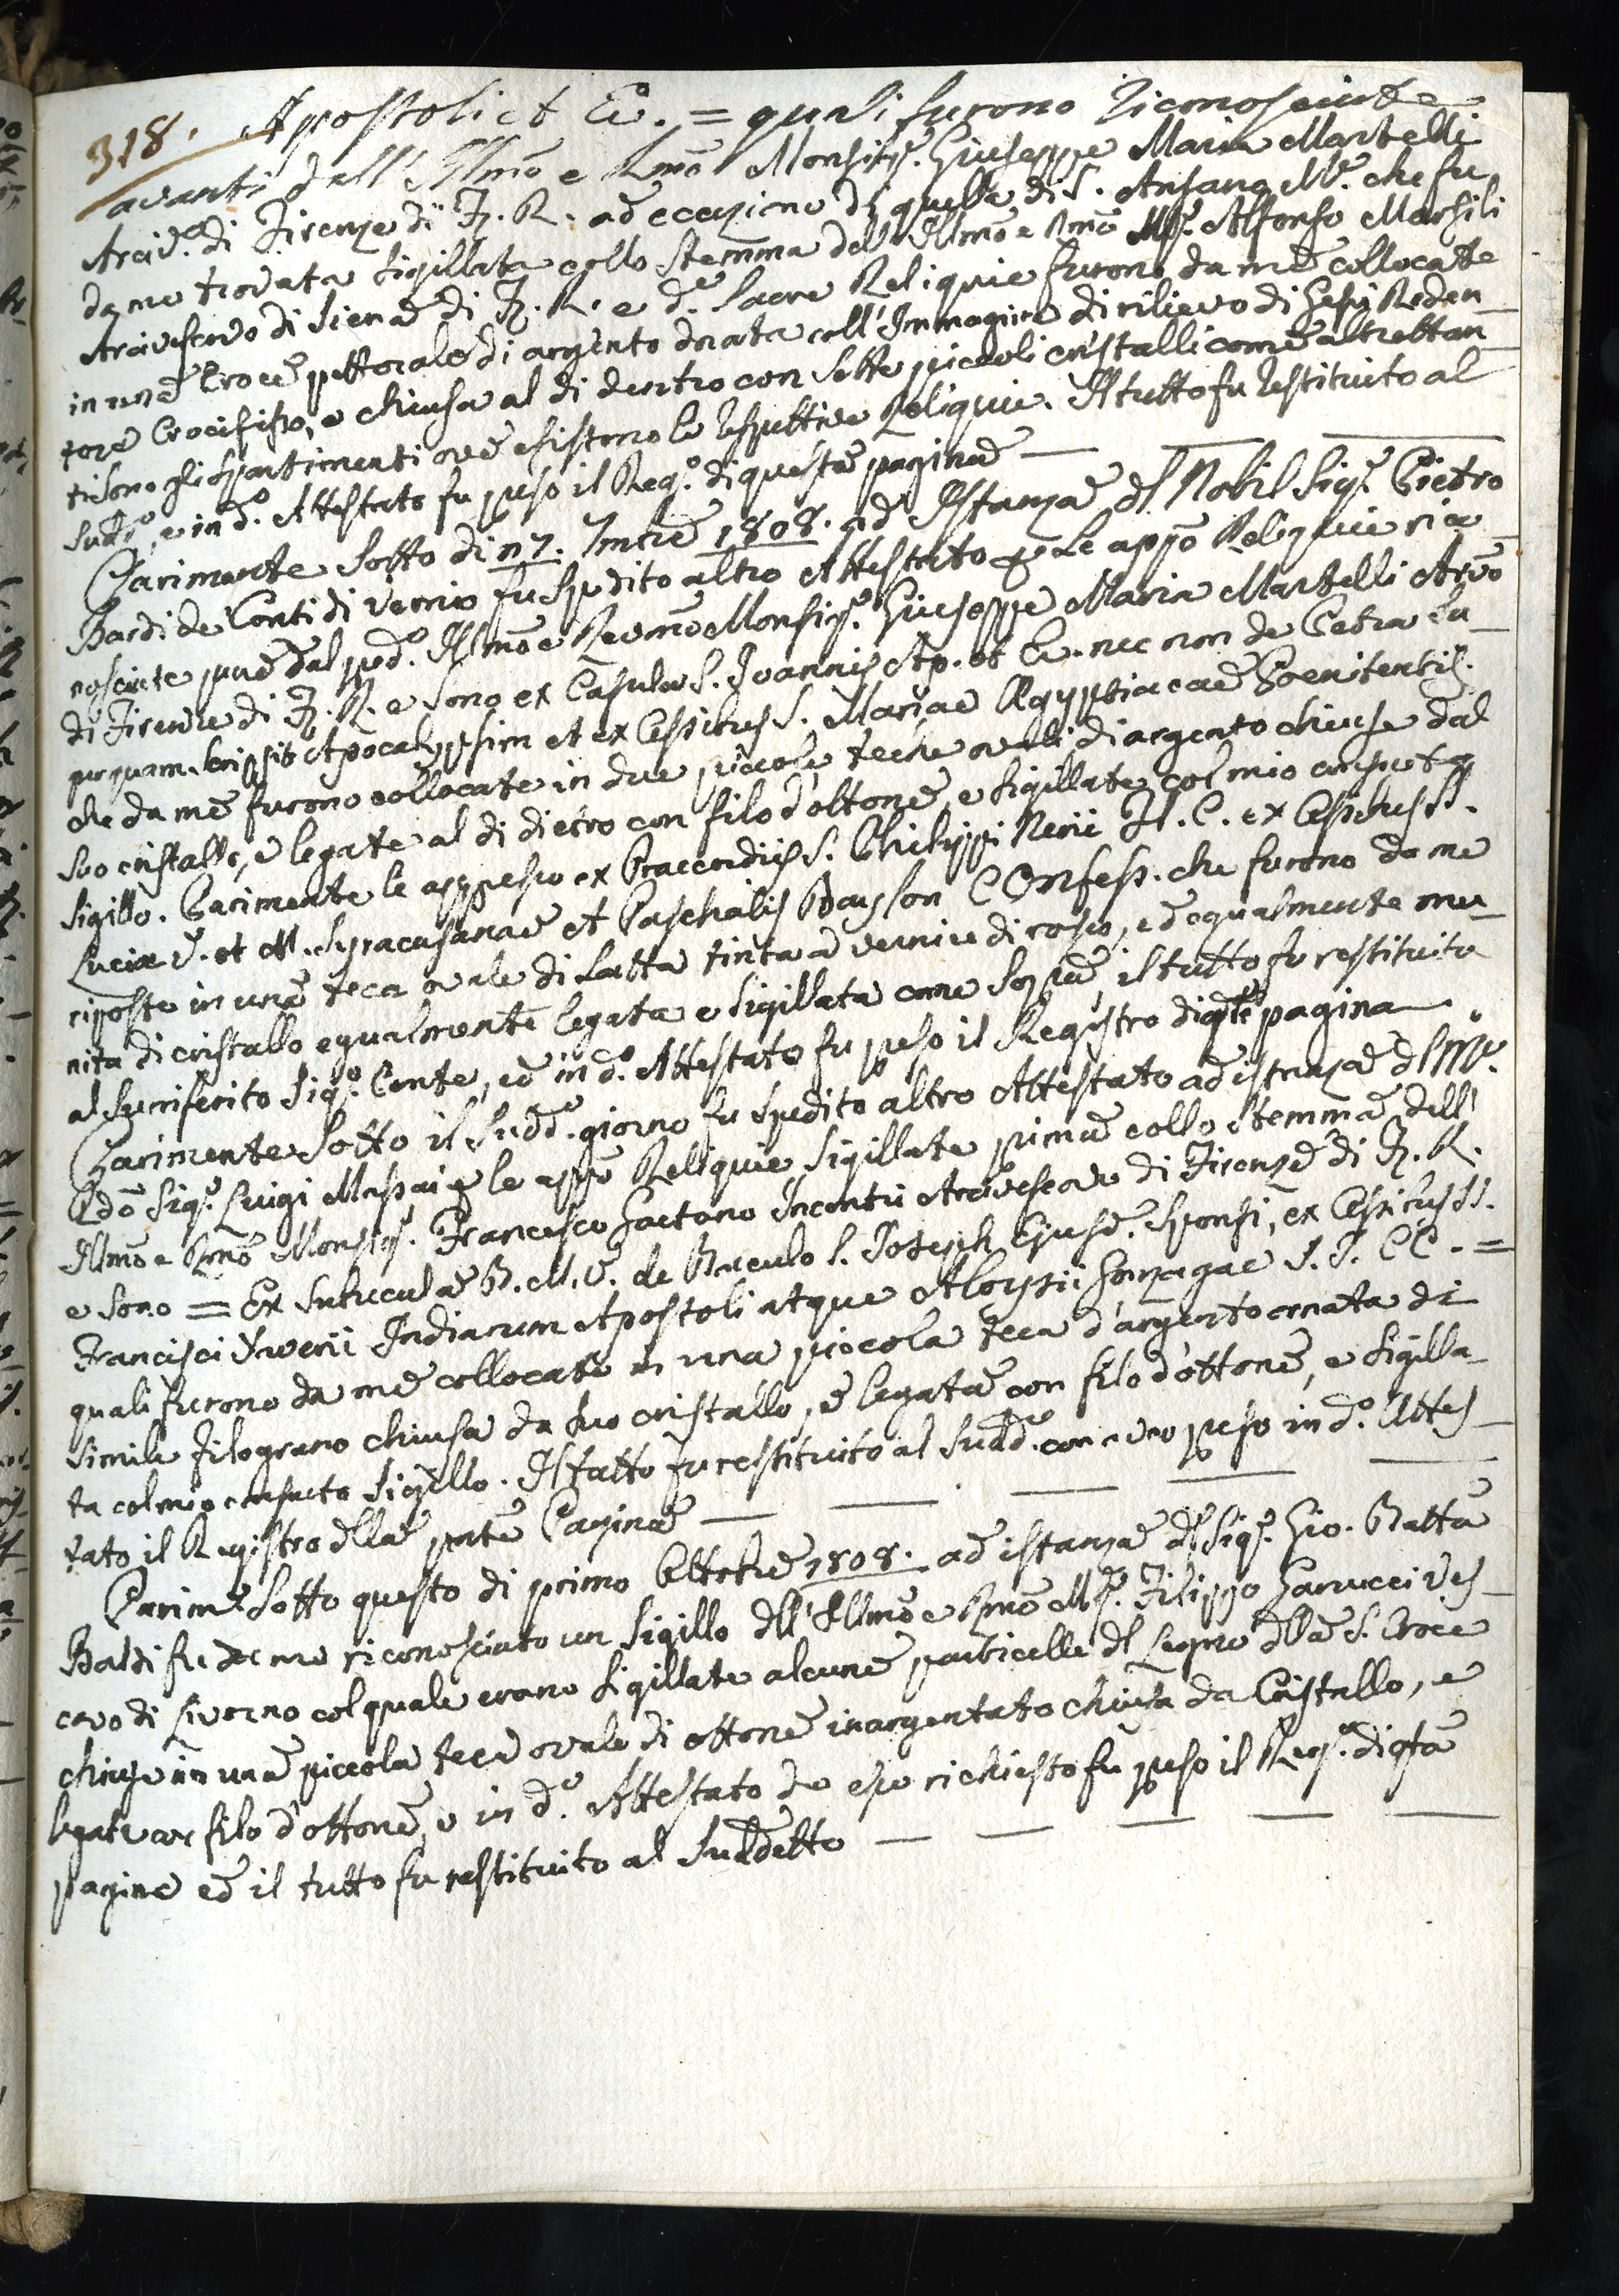 318. Apostoli et Ev. = quali furono riconosciute
avanti dall'Illmo e Rmo Monsigr. Giuseppe Maria Martelli
Arciv.o di Firenze di F. R. ad eccezione di quella di S. Ansano Mre. che fu
da me trovata sigillata collo Stemma dell'Illmo e Rmo Mgr. Alfonso Marsili
Arcivescovo di Siena di F. R. e de. Sacre Reliquie furono da me collocate
in una Croce pettorale di argento dorata coll'Immagine di rilievo di Gesù Reden-
tore Crocifisso, e chiusa al di dentro con sette piccoli cristalli come altrettan-
ti sono gli spartimenti ove esistono le respettive Reliquie. Il tutto fu restituito al
Sudd.o, e in d.o Attestato fu preso il Reg.o di questa pagina —
Parimente sotto dì 17. 7mbre 1808. ad Istanza dl Nobil Sigr. Pietro
Bardi de Conti di Vernio fu spedito altro Attestato p le appo Reliquie rico-
nosciute pure dal pred.o Illmo e Revmo Monsigr. Giuseppe Maria Martelli Arvo
di Firenze di F. R. e sono ex Casula S. Joannis Ap. et Ev. nec non de Petra su-
per quam scripsit Apocalypsim et ex Cineribus S. Mariae Ægyptiacae Poenitentis.
che da me furono collocate in due piccole teche ovali di argento chiuse dal
suo cristallo, e legate al di dietro con filo d'ottone, e sigillate col mio consueto
Sigillo. Parimente le appresso ex Praecordiis S. Philippi Nerii Fl. C. ex Cineribus SS.
Luciae V. et M. Syracusanae et Paschalis Baylon Confess. che furono da me
riposte in una teca ovale di Latta tinta a vernice di rosso, ed egualmente mu-
nita di cristallo egualmente legata e sigillata come sopra, il tutto fu restituito
al surriferito Sigr. Conte, ed in d.o Attestato fu preso il Registro di qta pagina —
Parimente sotto il Sudd.o giorno fu spedito altro Attestato ad istanza dl Mo.
Rdo Sigr. Luigi Massai p le appo Reliquie sigillate prima collo Stemma dell'
Illmo e Rmo Monsigr. Francesco Gaetano Incontri Arcivescovo di Firenze di F. R.
e sono = Ex Subucula B. M. V. de Baculo S. Joseph Ejusd. Sponsi, ex Cineribus SS.
Francisci Xaverii Indiarum Apostoli atque Aloysii Gonzagae S. J. CC. =
quali furono da me collocate in una piccola teca d'argento ornata di
simile filograno chiusa da suo cristallo, e legata con filo d'ottone, e sigilla-
ta col mio consueto Sigillo. Il tutto fu restituito al Sudd.o con avere preso in d.o Attes-
tato il Registro dlla pnte Pagina — — — — —
Parime. Sotto questo dì primo Ottobre 1808. ad istanza dl Sigr. Gio. Batta
Baldi fu da me riconosciuto un Sigillo dll'Illmo e Rmo Mgr. Filippo Ganucci Ves-
covo di Livorno col quale erano sigillate alcune particelle dl Legno dlla S. Croce
chiuse in una piccola teca ovale di ottone inargentato chiusa da Cristallo, e
legata con filo d'ottone, e in d.o Attestato da esso richiesto fu preso il Reg.o di qta
pagina ed il tutto fu restituito al Suddetto — — — — —